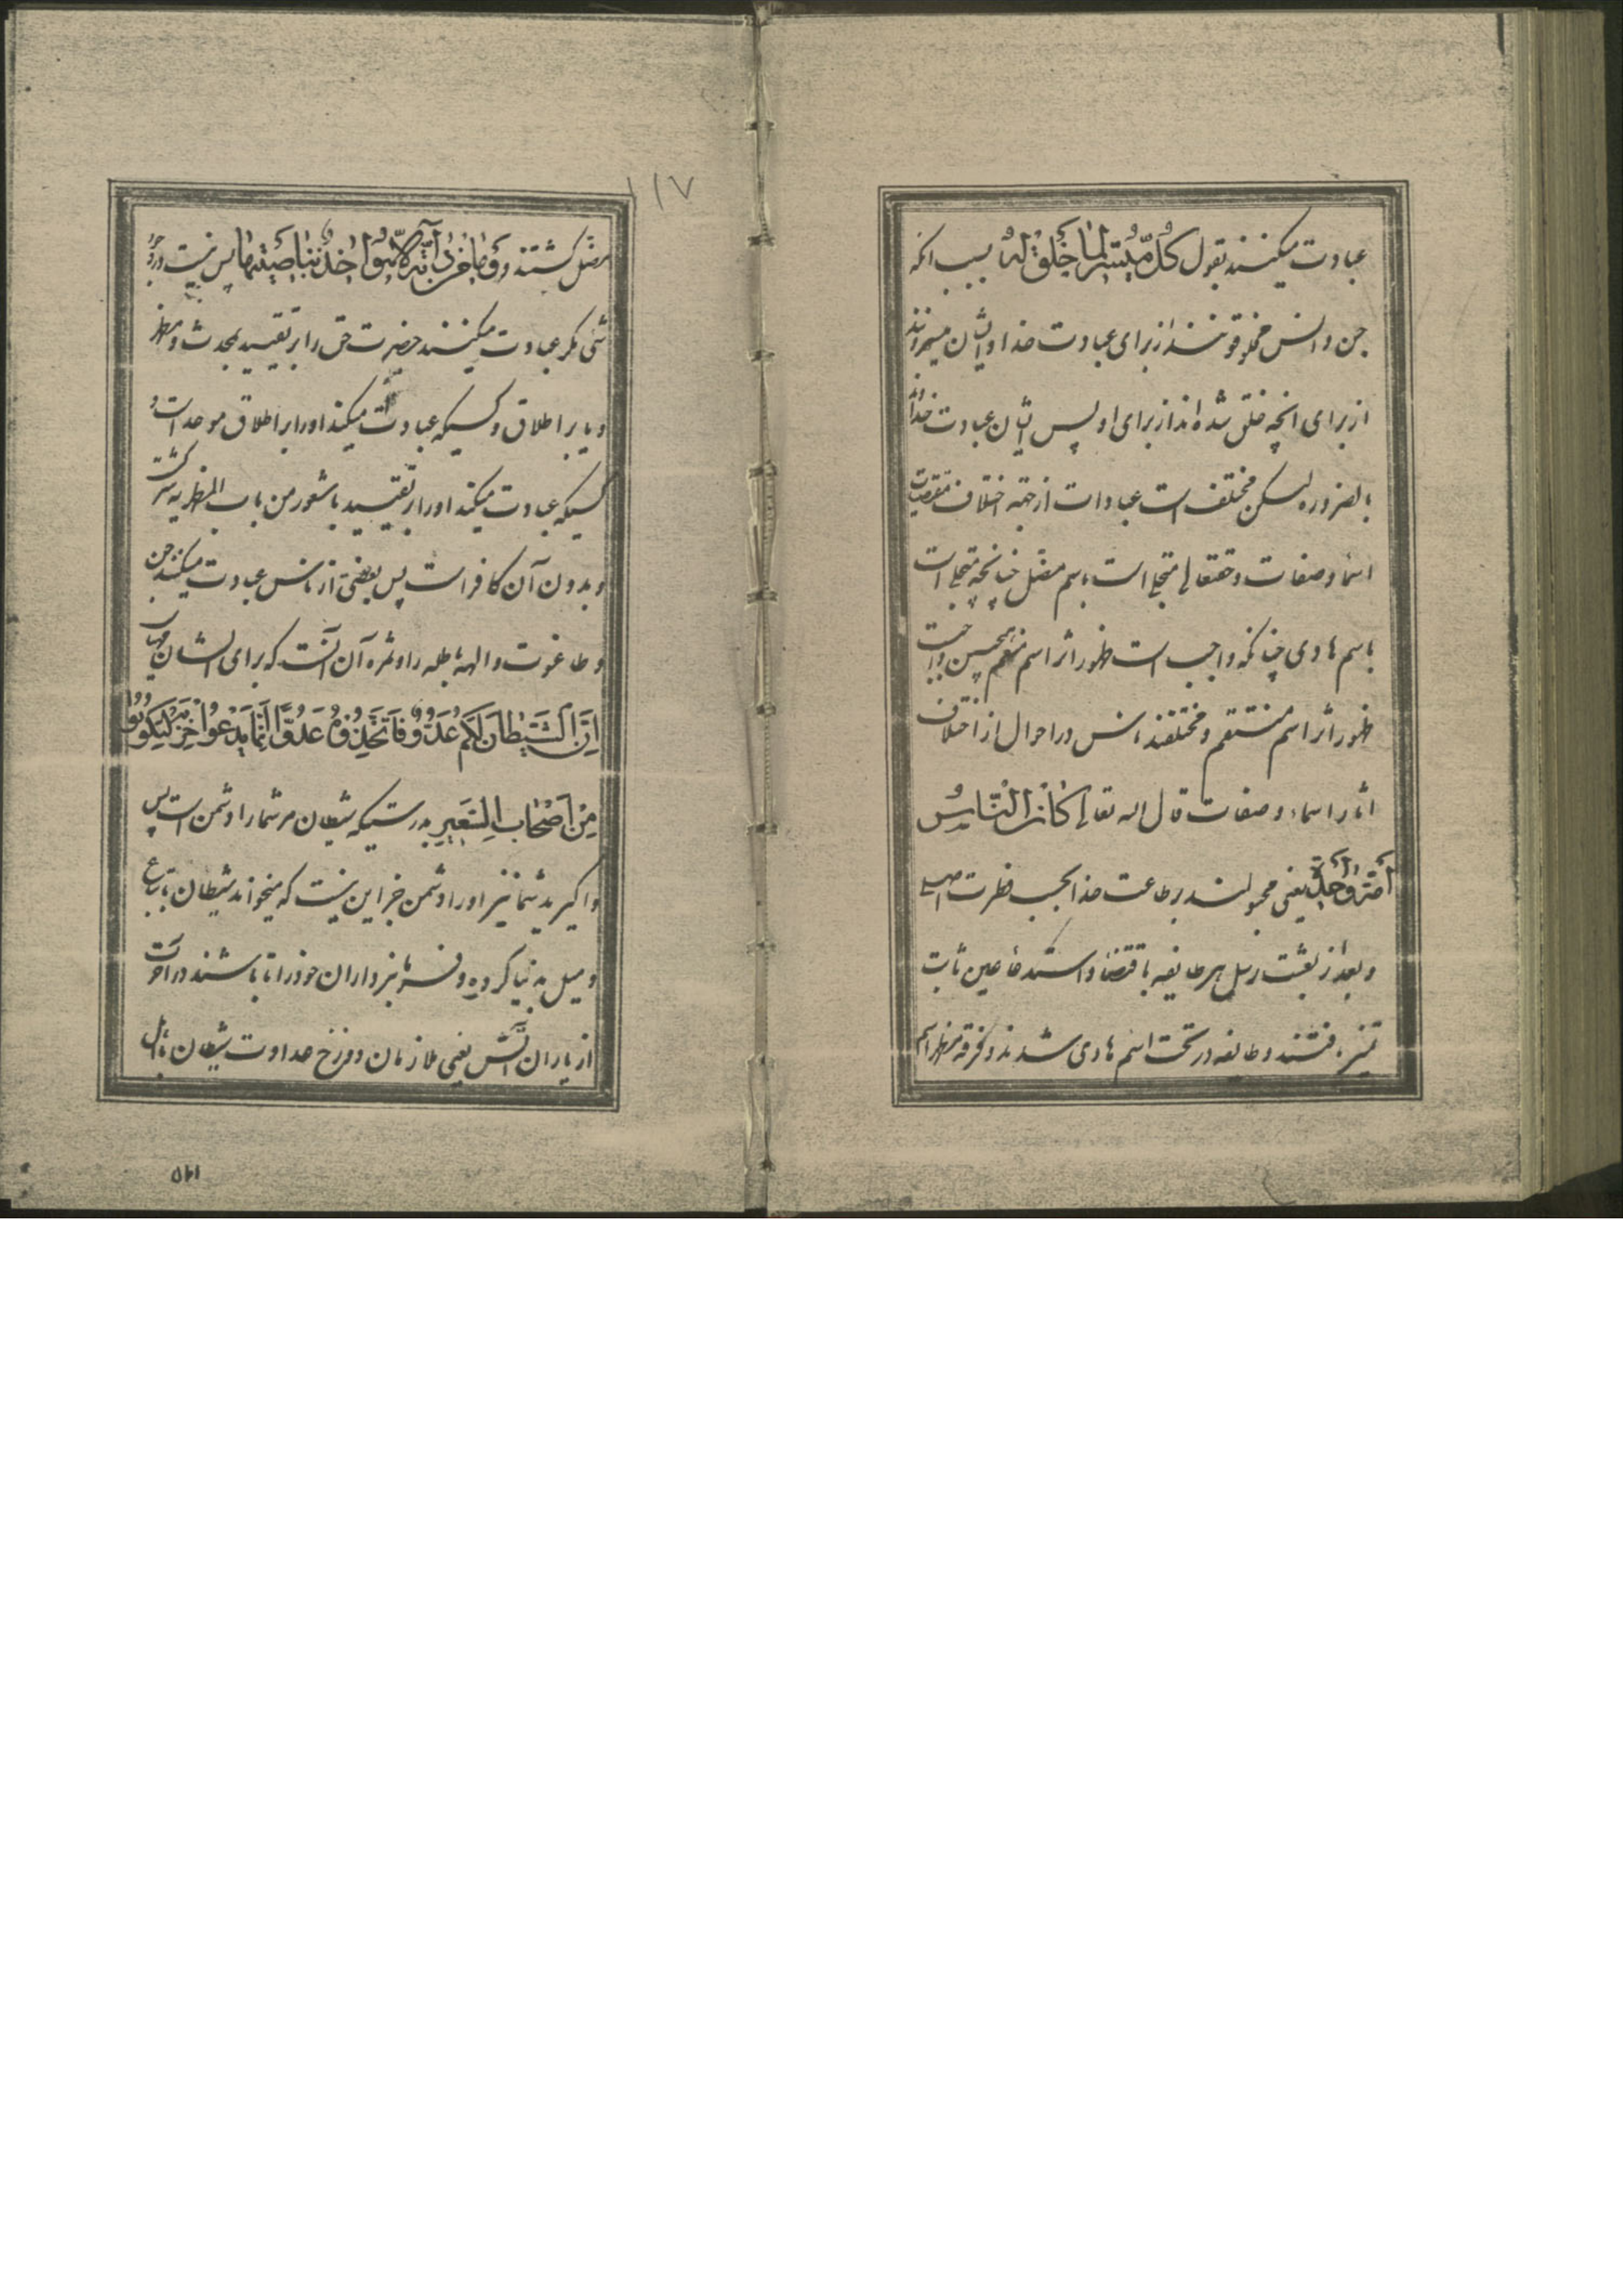 عبادت میکنند بقول كُلٌّ مُيَسَّرٌ لِمَا خُلِقَ لَهُ بسبب انکه
جن و انس مخلوق شدند از برای عبادت خدا و ایشان میسروند
از برای انچه خلق شده‌اند از برای او پس ایشان عبادت خدا
بالضروره لیکن مختلف است عبادات از جهة اختلاف مقتضیات
اسما و صفات و حقتعالی متجلی است باسم مضل چنانچه متجلی است
باسم هادی چنانکه واجب است ظهور اثر اسم منعم همچنین واجبست
ظهور اثر اسم منتقم و مختلفند ناس در احوال از اختلاف
اثار اسماء و صفات قال الله تعالی كَانَ النَّاسُ
اُمَّةً وَاحِدَةً یعنی مجبولند بر طاعت خدا بحسب فطرت اصلی
و بعد از بعثت رسل هر طایفه باقتضا و استدعا عین ثابت
تمیز یافتند و طایفه در تحت اسم هادی شدند و فرقه مظهر اسم
۱۱۷
مضل گشتند وَ مَا مِنْ دَابَّةٍ اِلَّا هُوَ اٰخِذٌ بِنَاصِيَتِهَا پس نیست در وجود
شئ مکر عبادت میکنند حضرت حق را بر تقیید بمحدث و مظهر
و یا بر اطلاق و کسیکه عبادت میکند اورا بر اطلاق موحد است و
کسیکه عبادت میکند اورا بر تقیید با شعور من باب المظهریه مشرک است
و بدون آن کافر است پس بعضی از ناس عبادت میکنند جن
و طاغوت و الهه باطله را و ثمره آن آنست که برای ایشان
اِنَّ الشَّيْطَانَ لَكُمْ عَدُوٌّ فَاتَّخِذُوهُ عَدُوًّا اِنَّمَا يَدْعُوا حِزْبَهُ لِيَكُونُوا
مِنْ اَصْحَابِ السَّعِيرِ بدرستیکه شیطان مر شما را دشمن است پس
فراکیرید شما نیز اورا دشمن جز این نیست که میخواند شیطان باتباع
و میل بدنیا کرده و فرمانبرداران خود را تا باشند در آخرت
از یاران آتش یعنی ملازمان دوزخ عداوت شیطان با اهل